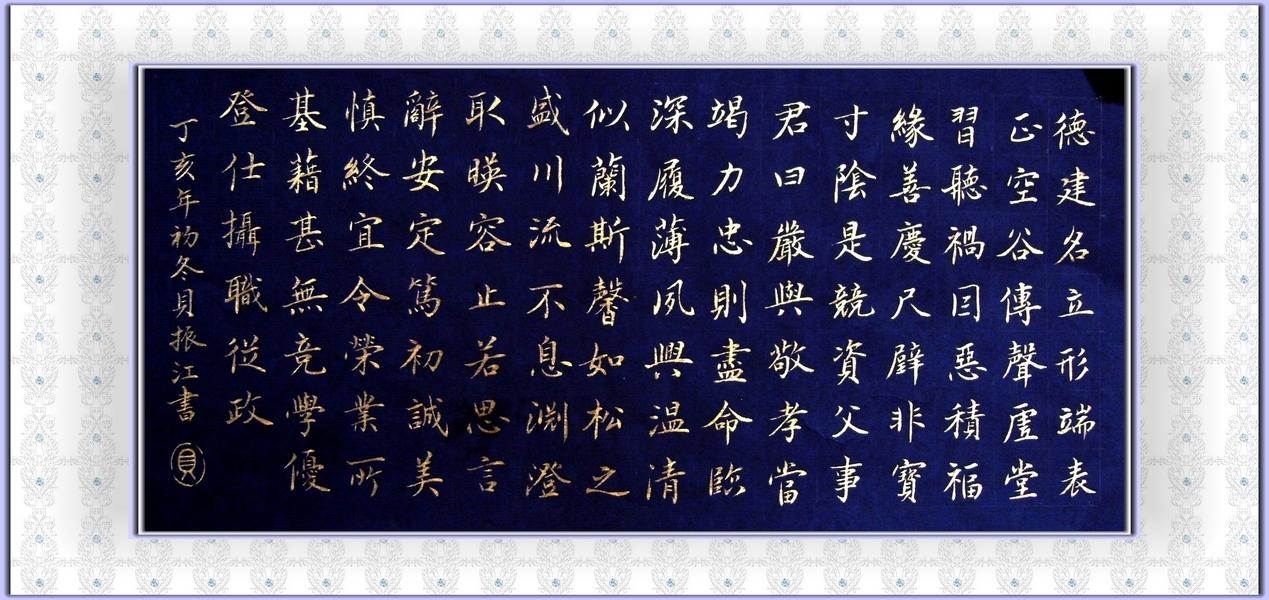 德建名立形端表
正空谷傳聲虛堂
習聽禍因惡積福
緣善慶尺璧非寶
寸陰是競資父事
君曰嚴與敬孝當
竭力忠則盡命臨
深履薄夙興温清
似蘭斯馨如松之
盛川流不息淵澄
取暎容止若思言
辭安定篤初誠美
慎終宜令榮業所
基藉甚無竟學優
登仕攝職從政
丁亥年初冬貝振江書
貝